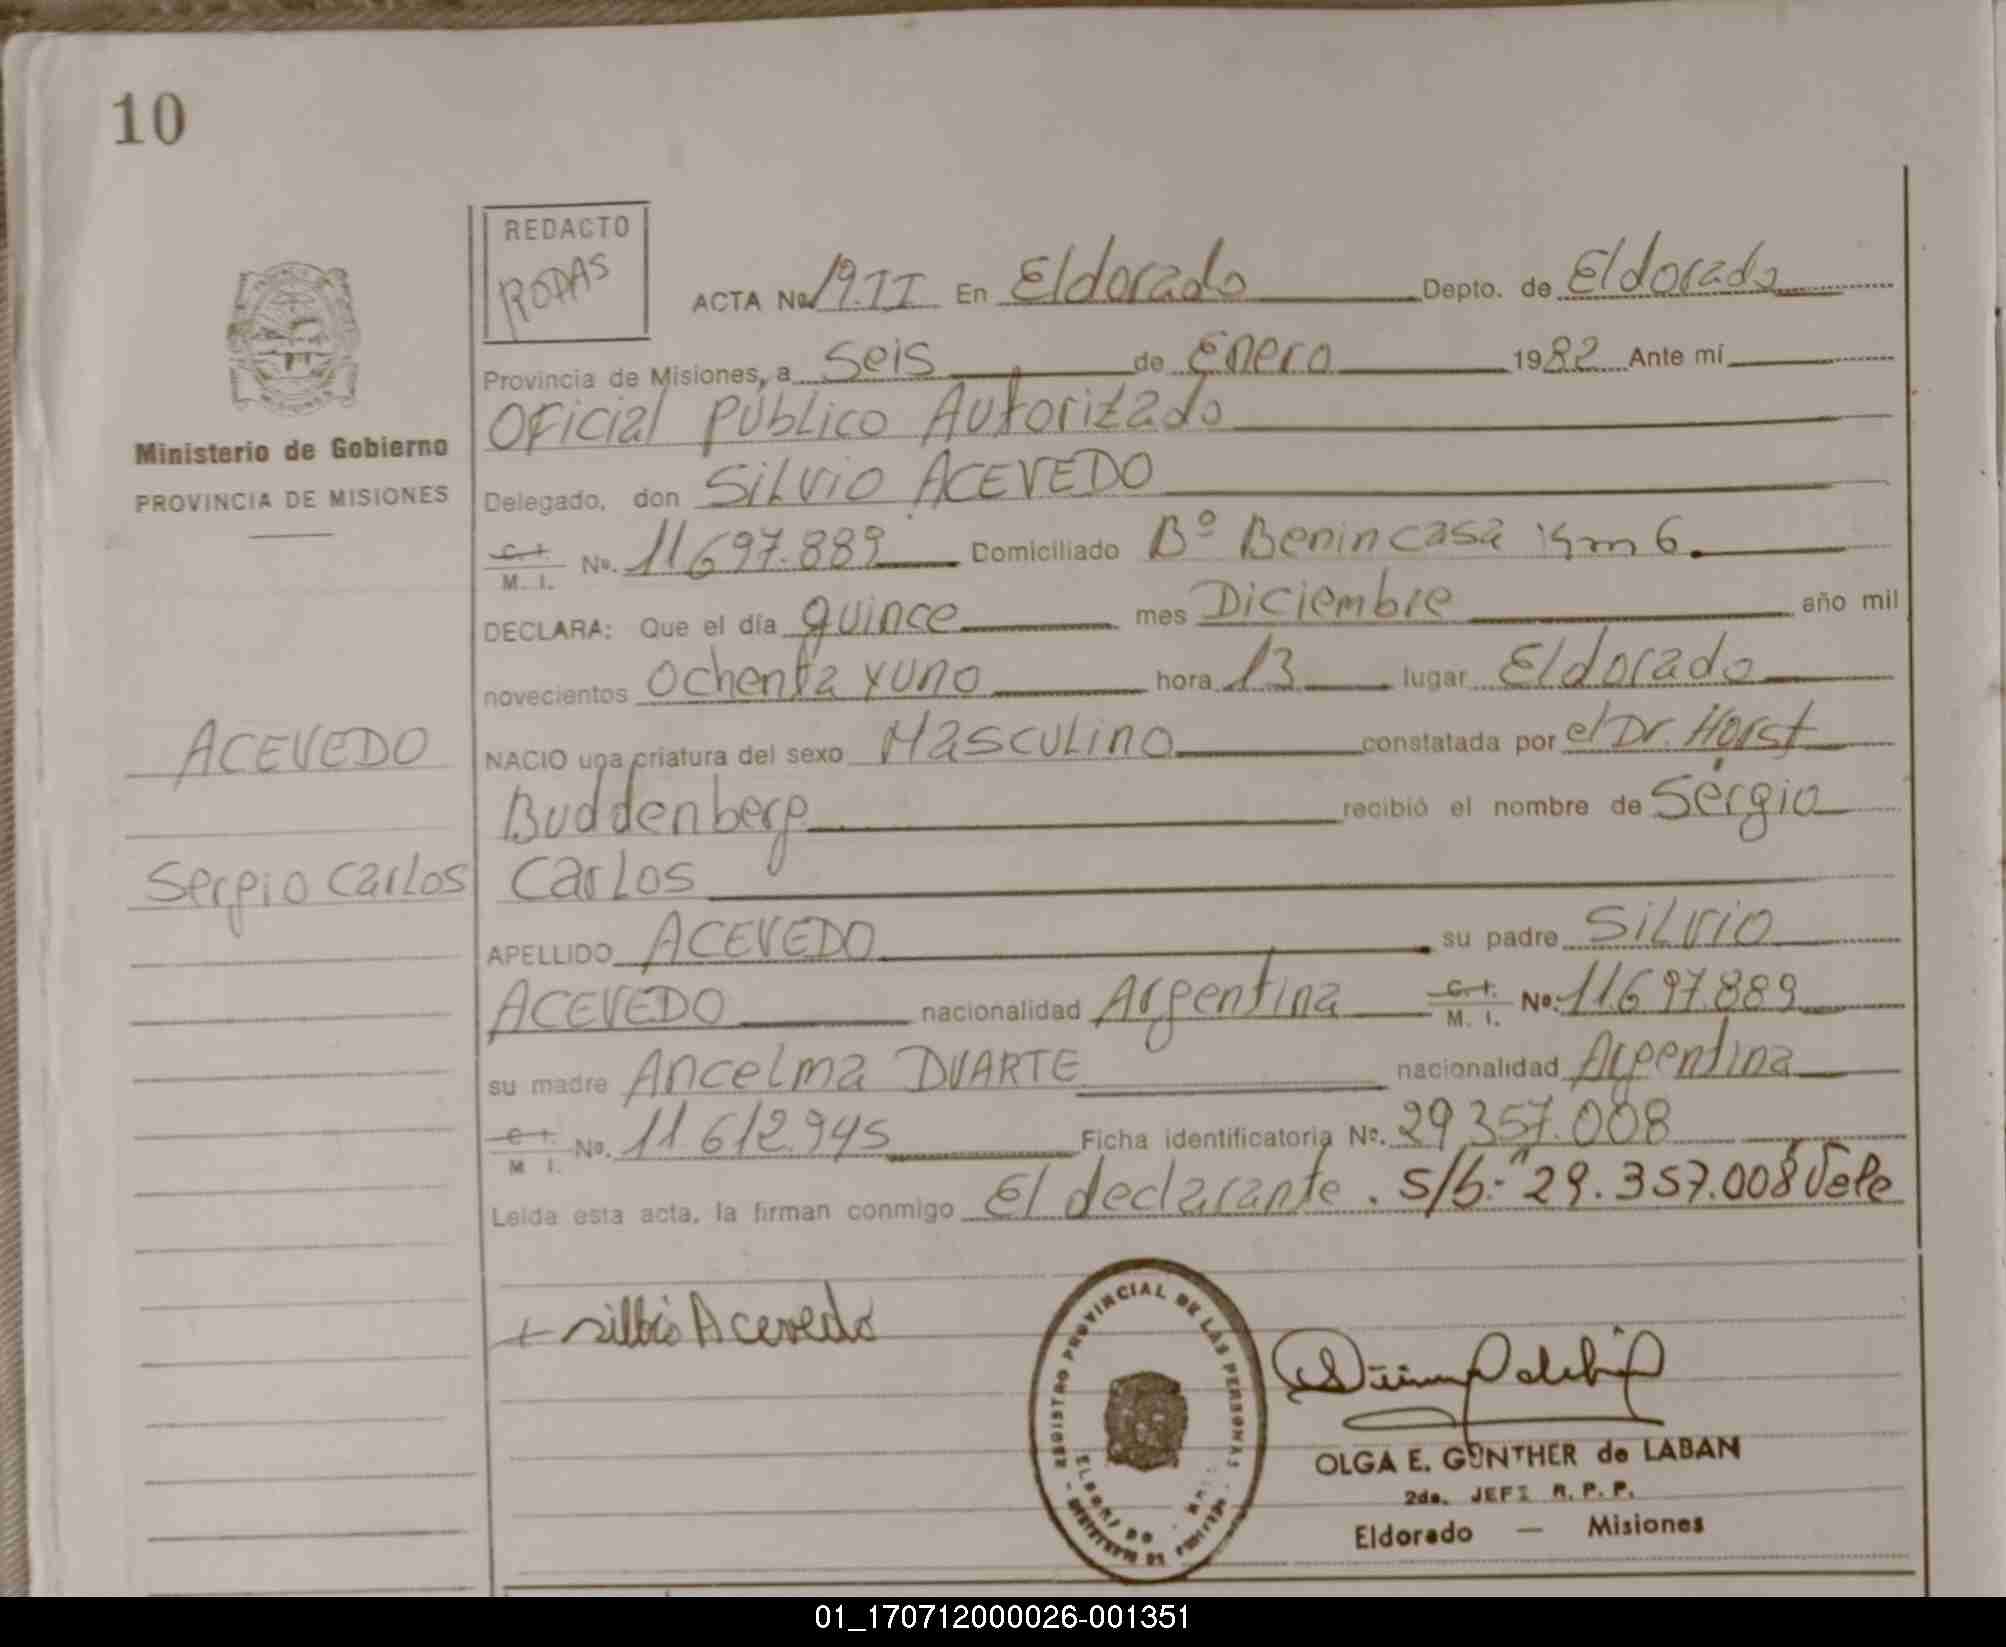 10
REDACTO
RODAS
ACTA No. 19.II En Eldorado Depto. de Eldorado
Provincia de Misiones, a seis de Enero 1982 Ante mí
Oficial Público Autorizado
Ministerio de Gobierno
PROVINCIA DE MISIONES
Delegado, don SiLViO ACEVEDO
C. I. M. I. No. 11.697.889 Domiciliado Bº Benincasa Km 6.
DECLARA: Que el día quince mes Diciembre año mil
novecientos Ochenta y uno hora 13 lugar Eldorado
ACEVEDO
NACIO una criatura del sexo Masculino constatada por el Dr. Horst
Buddenberg recibió el nombre de Sérgio
Sergio Carlos
Carlos
APELLIDO ACEVEDO su padre SiLViO
ACEVEDO nacionalidad Argentina C. I. M. I. No. 11.697.889
su madre Ancelma DUARTE nacionalidad Argentina
C. I. M. I. No. 11.612.945 Ficha identificatoria No. 29.357.008
Leida esta acta, la firman conmigo El declarante. s/b:- "29.357.008" Vale
+ Silbio Acevedo
REGISTRO PROVINCIAL DE LAS PERSONAS
ELDORADO
OLGA E. GÜNTHER de LABAN
2da. JEFE R. P. P.
Eldorado — Misiones
01_170712000026-001351